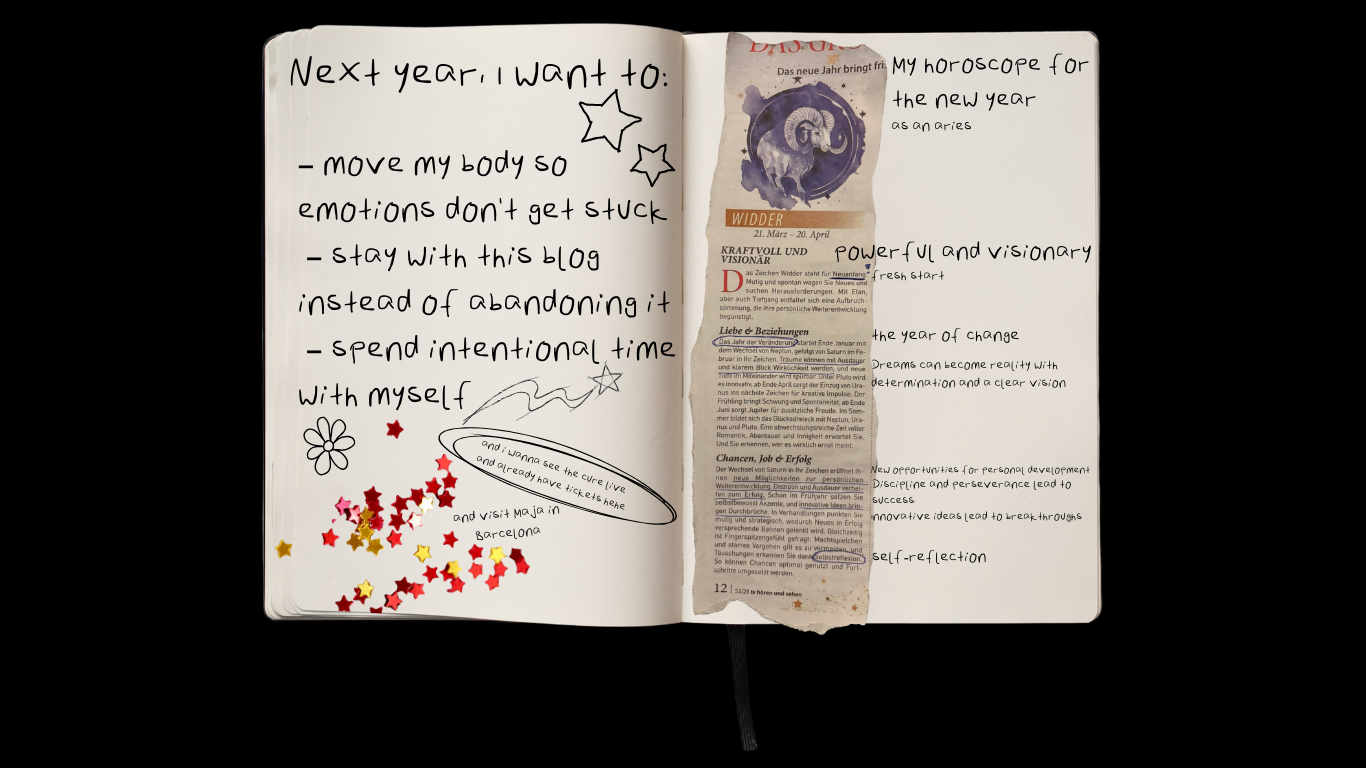 Next year, I want to:
- move my body so
emotions don't get stuck
- stay with this blog
instead of abandoning it
- spend intentional time
with myself
and i wanna see the cure live
and already have tickets hehe
and visit Maja in
Barcelona
Das neue Jahr bringt fri
My horoscope for
the new year
as an aries
WIDDER
21. März – 20. April
KRAFTVOLL UND
VISIONÄR
powerful and visionary
Das Zeichen Widder steht für Neuanfang.
Mutig und spontan wagen Sie Neues und
suchen Herausforderungen. Mit Elan,
aber auch Tiefgang entfaltet sich eine Aufbruch-
stimmung, die Ihre persönliche Weiterentwicklung
begünstigt.
fresh start
Liebe & Beziehungen
Das Jahr der Veränderung startet Ende Januar mit
dem Wechsel von Neptun, gefolgt von Saturn im Fe-
bruar in Ihr Zeichen. Träume können mit Ausdauer
und klarem Blick Wirklichkeit werden, und neue
Tiefe im Miteinander wird spürbar. Unter Pluto wird
es innovativ, ab Ende April sorgt der Einzug von Ura-
nus ins nächste Zeichen für kreative Impulse. Der
Frühling bringt Schwung und Spontaneität, ab Ende
Juni sorgt Jupiter für zusätzliche Freude. Im Som-
mer bildet sich das Glücksdreieck mit Neptun, Ura-
nus und Pluto. Eine abwechslungsreiche Zeit voller
Romantik, Abenteuer und Innigkeit erwartet Sie.
Und Sie erkennen, wer es wirklich ernst meint.
the year of change
Dreams can become reality with
determination and a clear vision
Chancen, Job & Erfolg
Der Wechsel von Saturn in Ihr Zeichen eröffnet Ih-
nen neue Möglichkeiten zur persönlichen
Weiterentwicklung. Disziplin und Ausdauer verhel-
fen zum Erfolg. Schon im Frühjahr setzen Sie
selbstbewusst Akzente, und innovative Ideen brin-
gen Durchbrüche. In Verhandlungen punkten Sie
mutig und strategisch, wodurch Neues in Erfolg
versprechende Bahnen gelenkt wird. Gleichzeitig
ist Fingerspitzengefühl gefragt: Machtspielchen
und starres Vorgehen gilt es zu vermeiden, und
Täuschungen erkennen Sie dank Selbstreflexion.
So können Chancen optimal genutzt und Fort-
schritte umgesetzt werden.
New opportunities for personal development
Discipline and perseverance lead to
success
innovative ideas lead to breakthroughs
self-reflection
12 | 52/25 tv hören und sehen